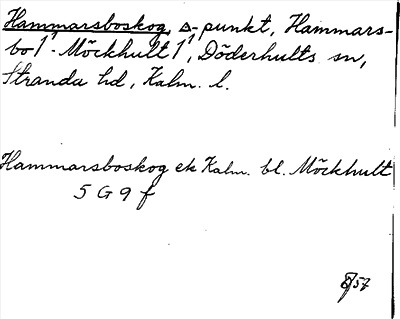 Hammarsboskog, △-punkt, Hammars-
bo 1¹. Möckhult 1¹, Döderhults sn,
Stranda hd, Kalm. l.
Hammarsboskog ek Kalm. bl. Möckhult
5 G 9 f
57